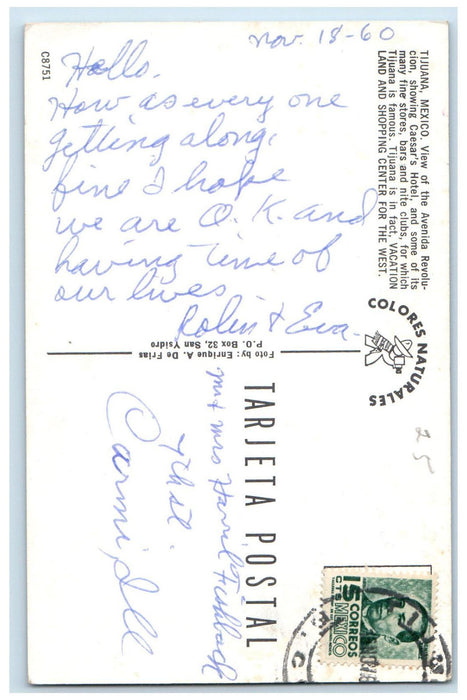 C8751
Nov. 18-60
Hello.
How as every one
getting along,
fine I hope
we are O.K. and
having time of
our lives
Robin & Eva.
TIJUANA, MEXICO. View of the Avenida Revolu-
cion, showing Caesar's Hotel, and some of its
many fine stores, bars and nite clubs, for which
Tijuana is famous. Tijuana is in fact, VACATION
LAND AND SHOPPING CENTER FOR THE WEST.
COLORES NATURALES
Foto by: Enrique A. De Frias
P.O. Box 32, San Ysidro
TARJETA POSTAL
Mr & Mrs Fishback
7th st
Carmi, Ill
25
15
CTS
CORREOS
MEXICO